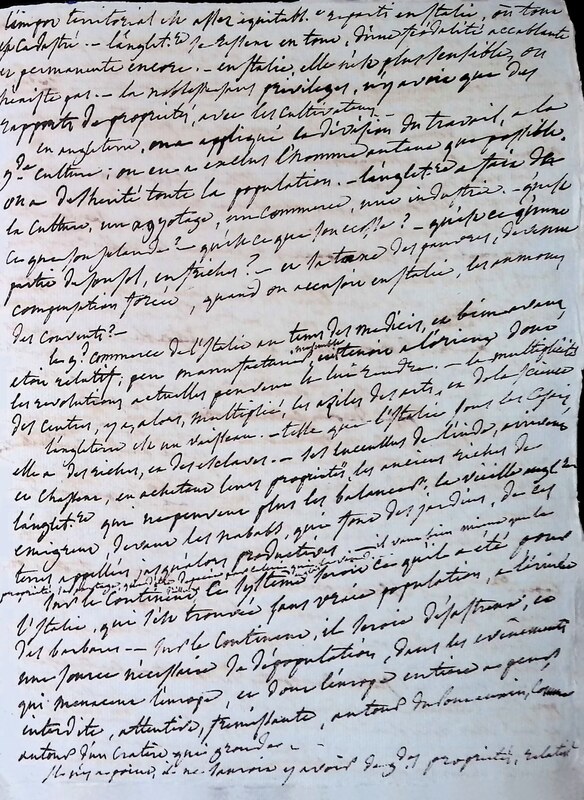 l'impot territorial est assez équitabl.t reparti en Italie, ou tout
est Cadastré. — l'anglet.re se ressent en tout, d'une féodalité accablante
et permanente encore. — en Italie, elle n'est plus sensible, ou
n'existe pas. — la noblesse sans privileges, n'y avoit que des
rapports de propriétés, avec les Cultivateurs.
en angleterre, on a appliqué la division du travail, a la
g.de Culture; on en a exclus l'homme autant que possible.
on a desherité toute la population. — l'anglet.re a fait de
la Culture, un agyotage, un commerce, une industrie. — qu'est
ce que son Irlande? — qu'est ce que son ecosse? — qu'est ce qu'une
partie de son sol, en friches? — et la taxe des pauvres, devenue
compensation forcée, quand on accusoit en Italie, les aumones
des Couvents? —
le g.d Commerce de l'Italie au tems des medicis, et bien avant,
etoit relatif; peu de manufactures existoient alors
les revolutions actuelles peuvent le lui rendre. — la multiplicité
des Centres, y a, alors, multiplié, les aziles des arts, et de la Science
l'angleterre est un vaisseau. — telle que l'Italie sous les Cesars,
elle a des riches, et des esclaves. — les lucullus de l'inde, arrivent
et chassent, en achetant leurs propriétés, les anciens riches de
l'anglet.re qui ne peuvent plus les balancer; la vieille angl.re
emigre, devant les nababs, qui font des jardins, de ces
terres appellées jusqu'alors productives — il vaut bien mieux que la
Sur le Continent, Ce systême seroit ce qu'il a été pour
l'Italie, qui s'est trouvée sans vraie population, a l'arrivée
des barbares — sur le Continent, il seroit desastreux, et
une source nécessaire de dépopulation, dans les evénements
qui menacent l'europe, et dont l'europe entiere se
interdite, attentive, fremissante, autour du souverain, comme
autour d'un Cratère qui gronde. —
il n'y a point, et ne sauroit y avoir de g.des propriétés, relat